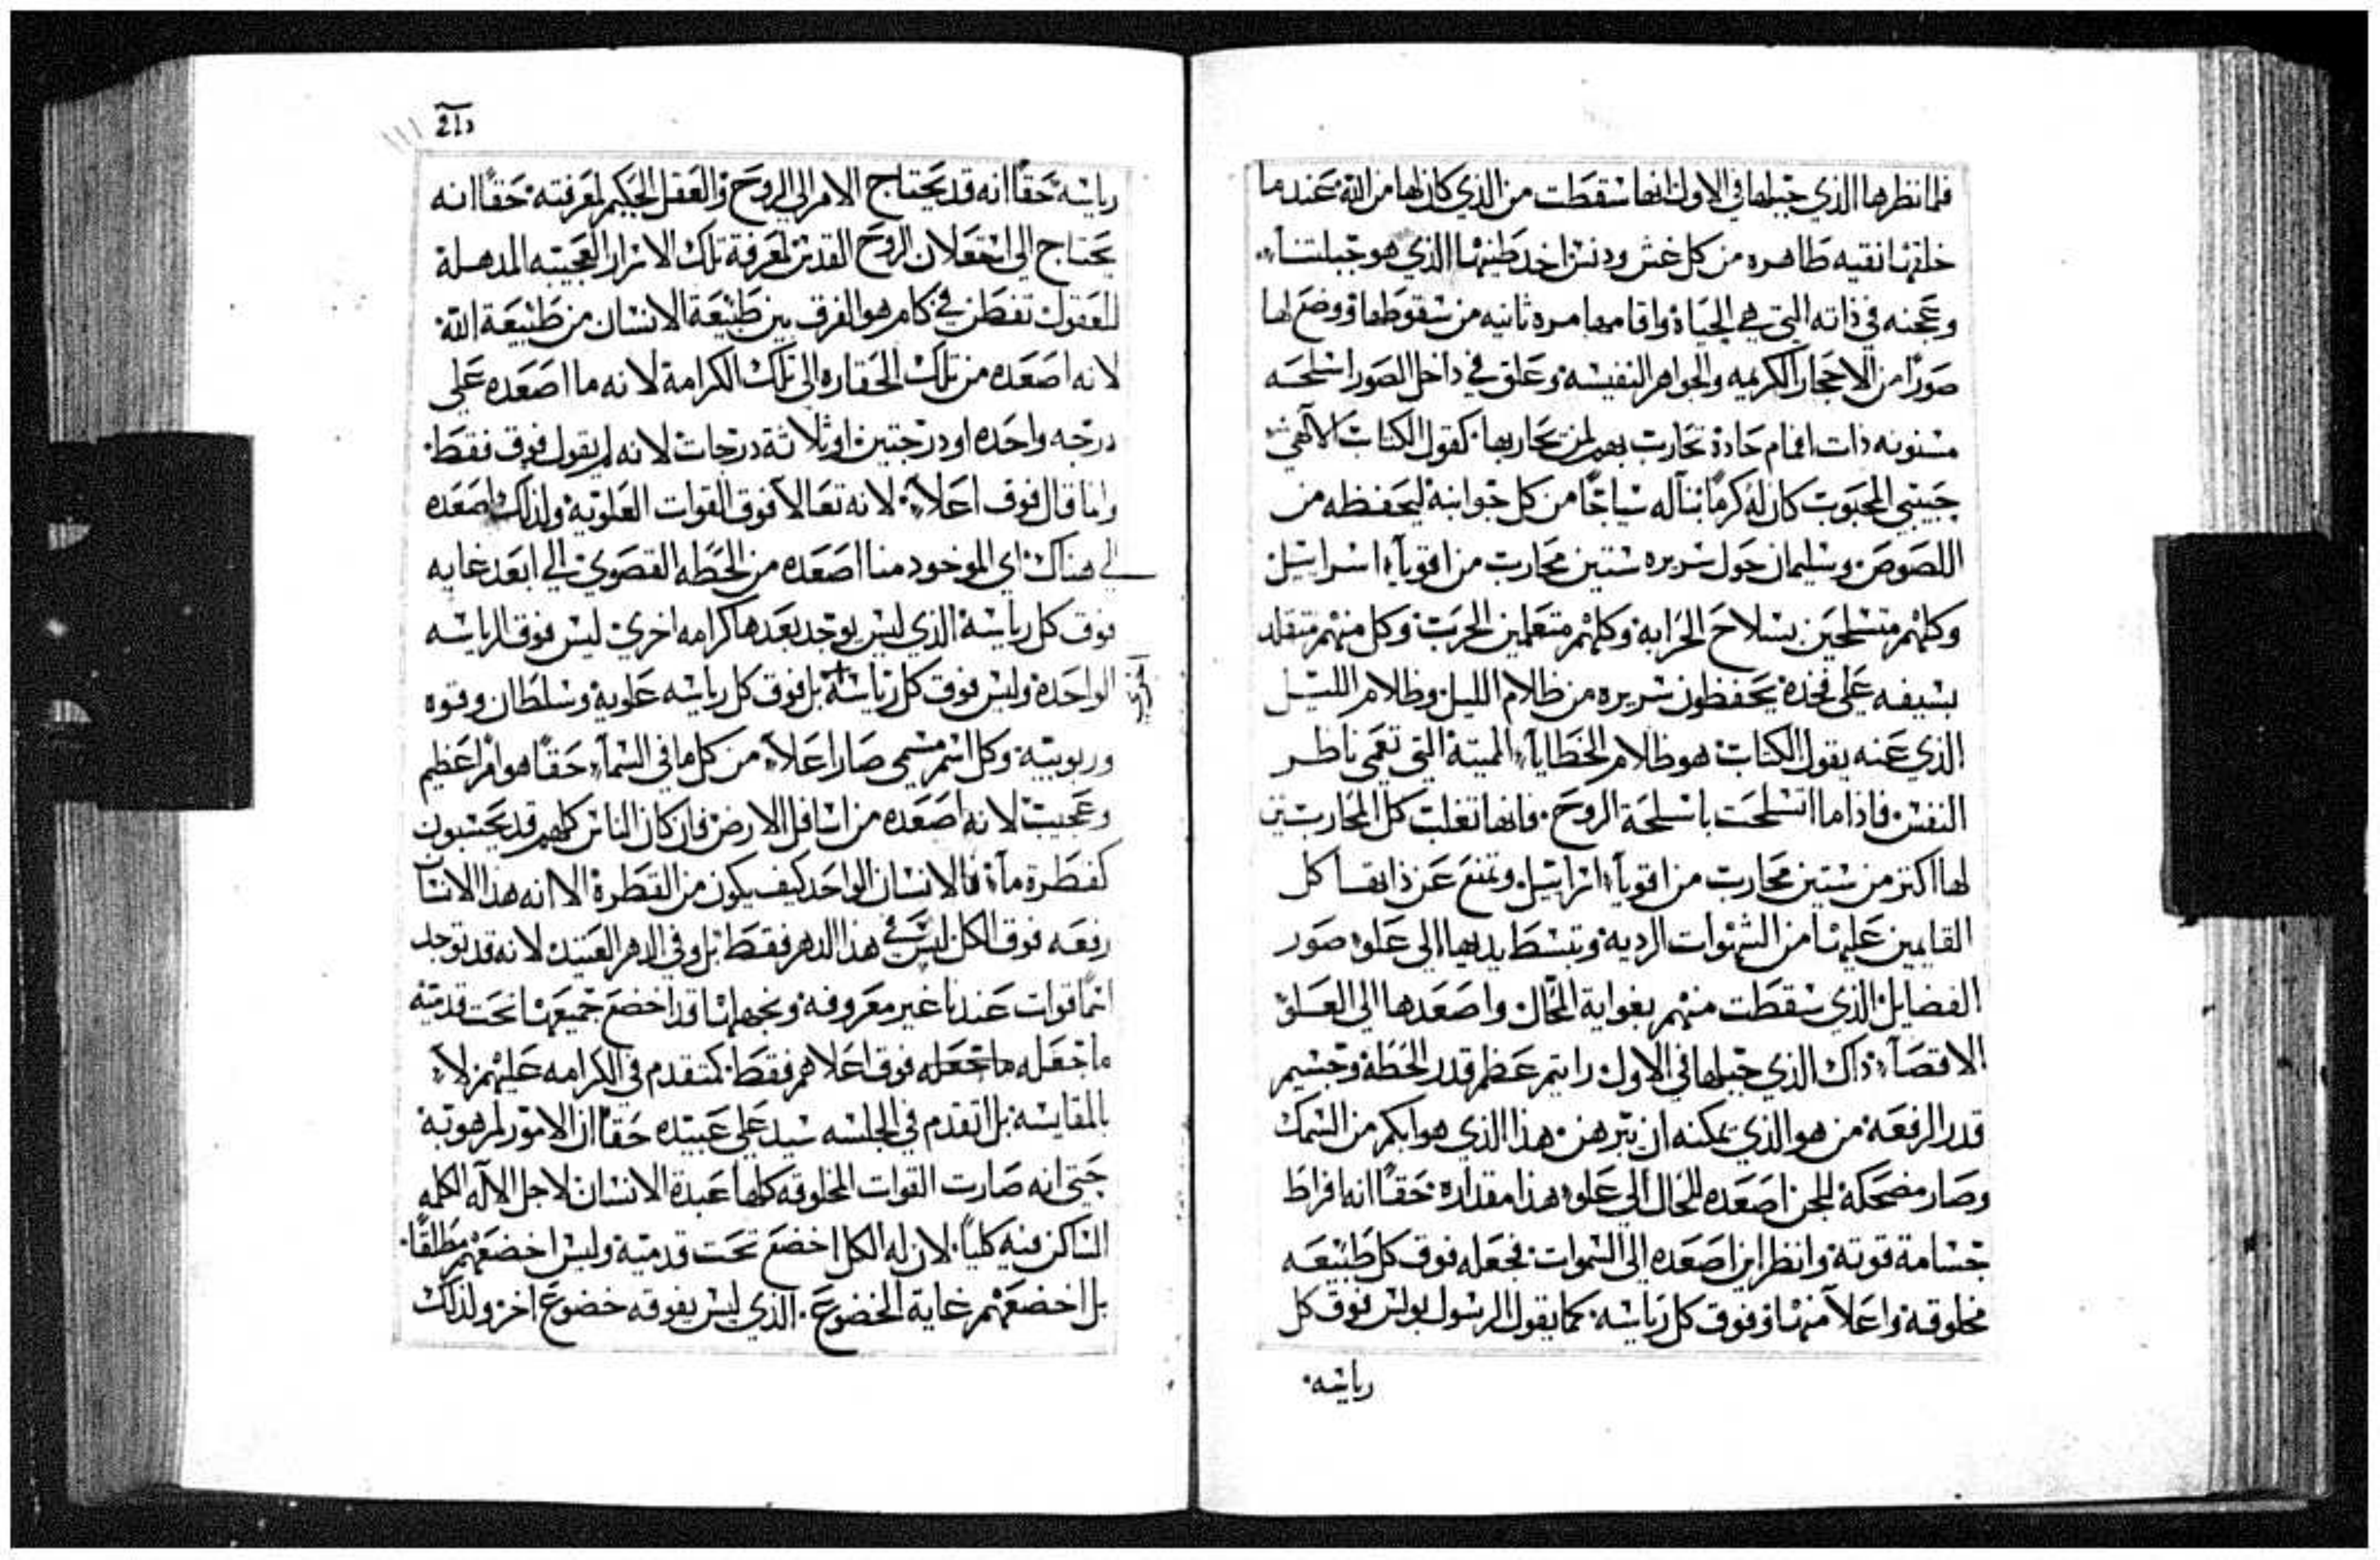 فلما نظرها الذي جبلها في الاول انها سقطت من الذي كان لها من الله عندما
خلقها نقيه طاهره من كل غش ودنس اخد طينها الذي هو جبلتنا
وعجنه في ذاته التي هي الحياة واقامها مره ثانيه من سقوطها ووضع لها
صورًا من الاحجار الكريمه والجواهر النفيسه وعلق في داخل الصور اسلحه
مسنونه ذات افمام حادة تحارب بهم لمن يحاربها كقول الكتاب الالهي
حبيبي المحبوب كان له كرمًا بنا له سياجًا من كل جوانبه ليحفظه من
اللصوص وسليمان حول سريره ستين محارب من اقوياء اسراييل
وكلهم متسلحين بسلاح الحرابه وكلهم متعلمين الحرب وكل منهم متقلد
بسيفه علي فخده يحفظون سريره من ظلام الليل وظلام الليل
الذي عنه يقول الكتاب هو ظلام الخطايا المميتة التي تعمي ناظر
النفس فاذا ما اتسلحت باسلحة الروح فانها تغلب كل المحاربين
لها اكتر من ستين محارب من اقوياء اسراييل وتمنع عن ذاتها كل
القايمين عليها من الشهوات الرديه وتبسط يديها الي علو صور
الفضايل الذي سقطت منهم بغواية المحال واصعدها الي العلو
الاقصاء داك الذي جبلها في الاول رايتم عظم قدر الحطة وجسيم
قدر الرفعة من هو الذي يمكنه ان يبرهن هذا الذي هو ابكم من السمك
وصار مضحكة للجن اصعده للحال الي علو هذا مقداره حقًا انه افراط
جسامة قوته وانظر اين اصعده الي السموات فجعله فوق كل طبيعه
مخلوقه واعلا منها وفوق كل رياسه كما يقول الرسول بولس فوق كل
رياسه
رياسه حقًا انه قد يحتاج الامر الي الروح والعقل الحكيم لمعرفته حقًا انه
يحتاج الي استعلان الروح القدس لمعرفة تلك الاسرار العجيبه المدهلة
للعقول تفطن في كام هو الفرق بين طبيعة الانسان من طبيعة الله
لانه اصعده من تلك الحقاره الي تلك الكرامة لانه ما اصعده علي
درجه واحده او درجتين او ثلاثة درجات لانه لم يقول فوق فقط
وانما قال فوق اعلاء لانه تعالا فوق القوات العلويه ولذلك اصعده
الي هناك اي الموخود منا اصعده من الحطه القصوي الي ابعد غايه
فوق كل رياسة الذي ليس يوجد بعدها كرامه اخري ليس فوق الرياسه
الواحدة وليس فوق كل رياسة بل فوق كل رياسه علوية وسلطان وقوه
وربوبية وكل اسم مسمي صار اعلاء من كل ما في السماء حقًا هو امر عظيم
وعجيب لانه اصعده من اسافل الارض فان كان الناس كلهم قد يحسبون
كقطرة ماء فالانسان الواحد كيف يكون من القطرة الا انه هذا الانسان
رفعه فوق الكل ليس في هذا الدهر فقط بل وفي الدهر العتيد لانه قد توجد
ثمًا قوات عندنا غير معروفه ونجهلها قد اخضع جميعها تحت قدميه
ما جعله فوق اعلاهم فقط كمتقدم في الكرامه عليهم لا
بالمقايسه بل اتقدم في الجلسه سيد علي عبيده حقًا ان الامور لمرهوبة
حتي انه صارت القوات المخلوقه كلها عبدة الانسان لاجل الاله الكلمه
الساكن فيه كليًا لان له الكل اخضع تحت قدميه وليس اخضعهم مطلقًا
بل اخضعهم غاية الخضوع الذي ليس يفوقه خضوع اخر ولذلك